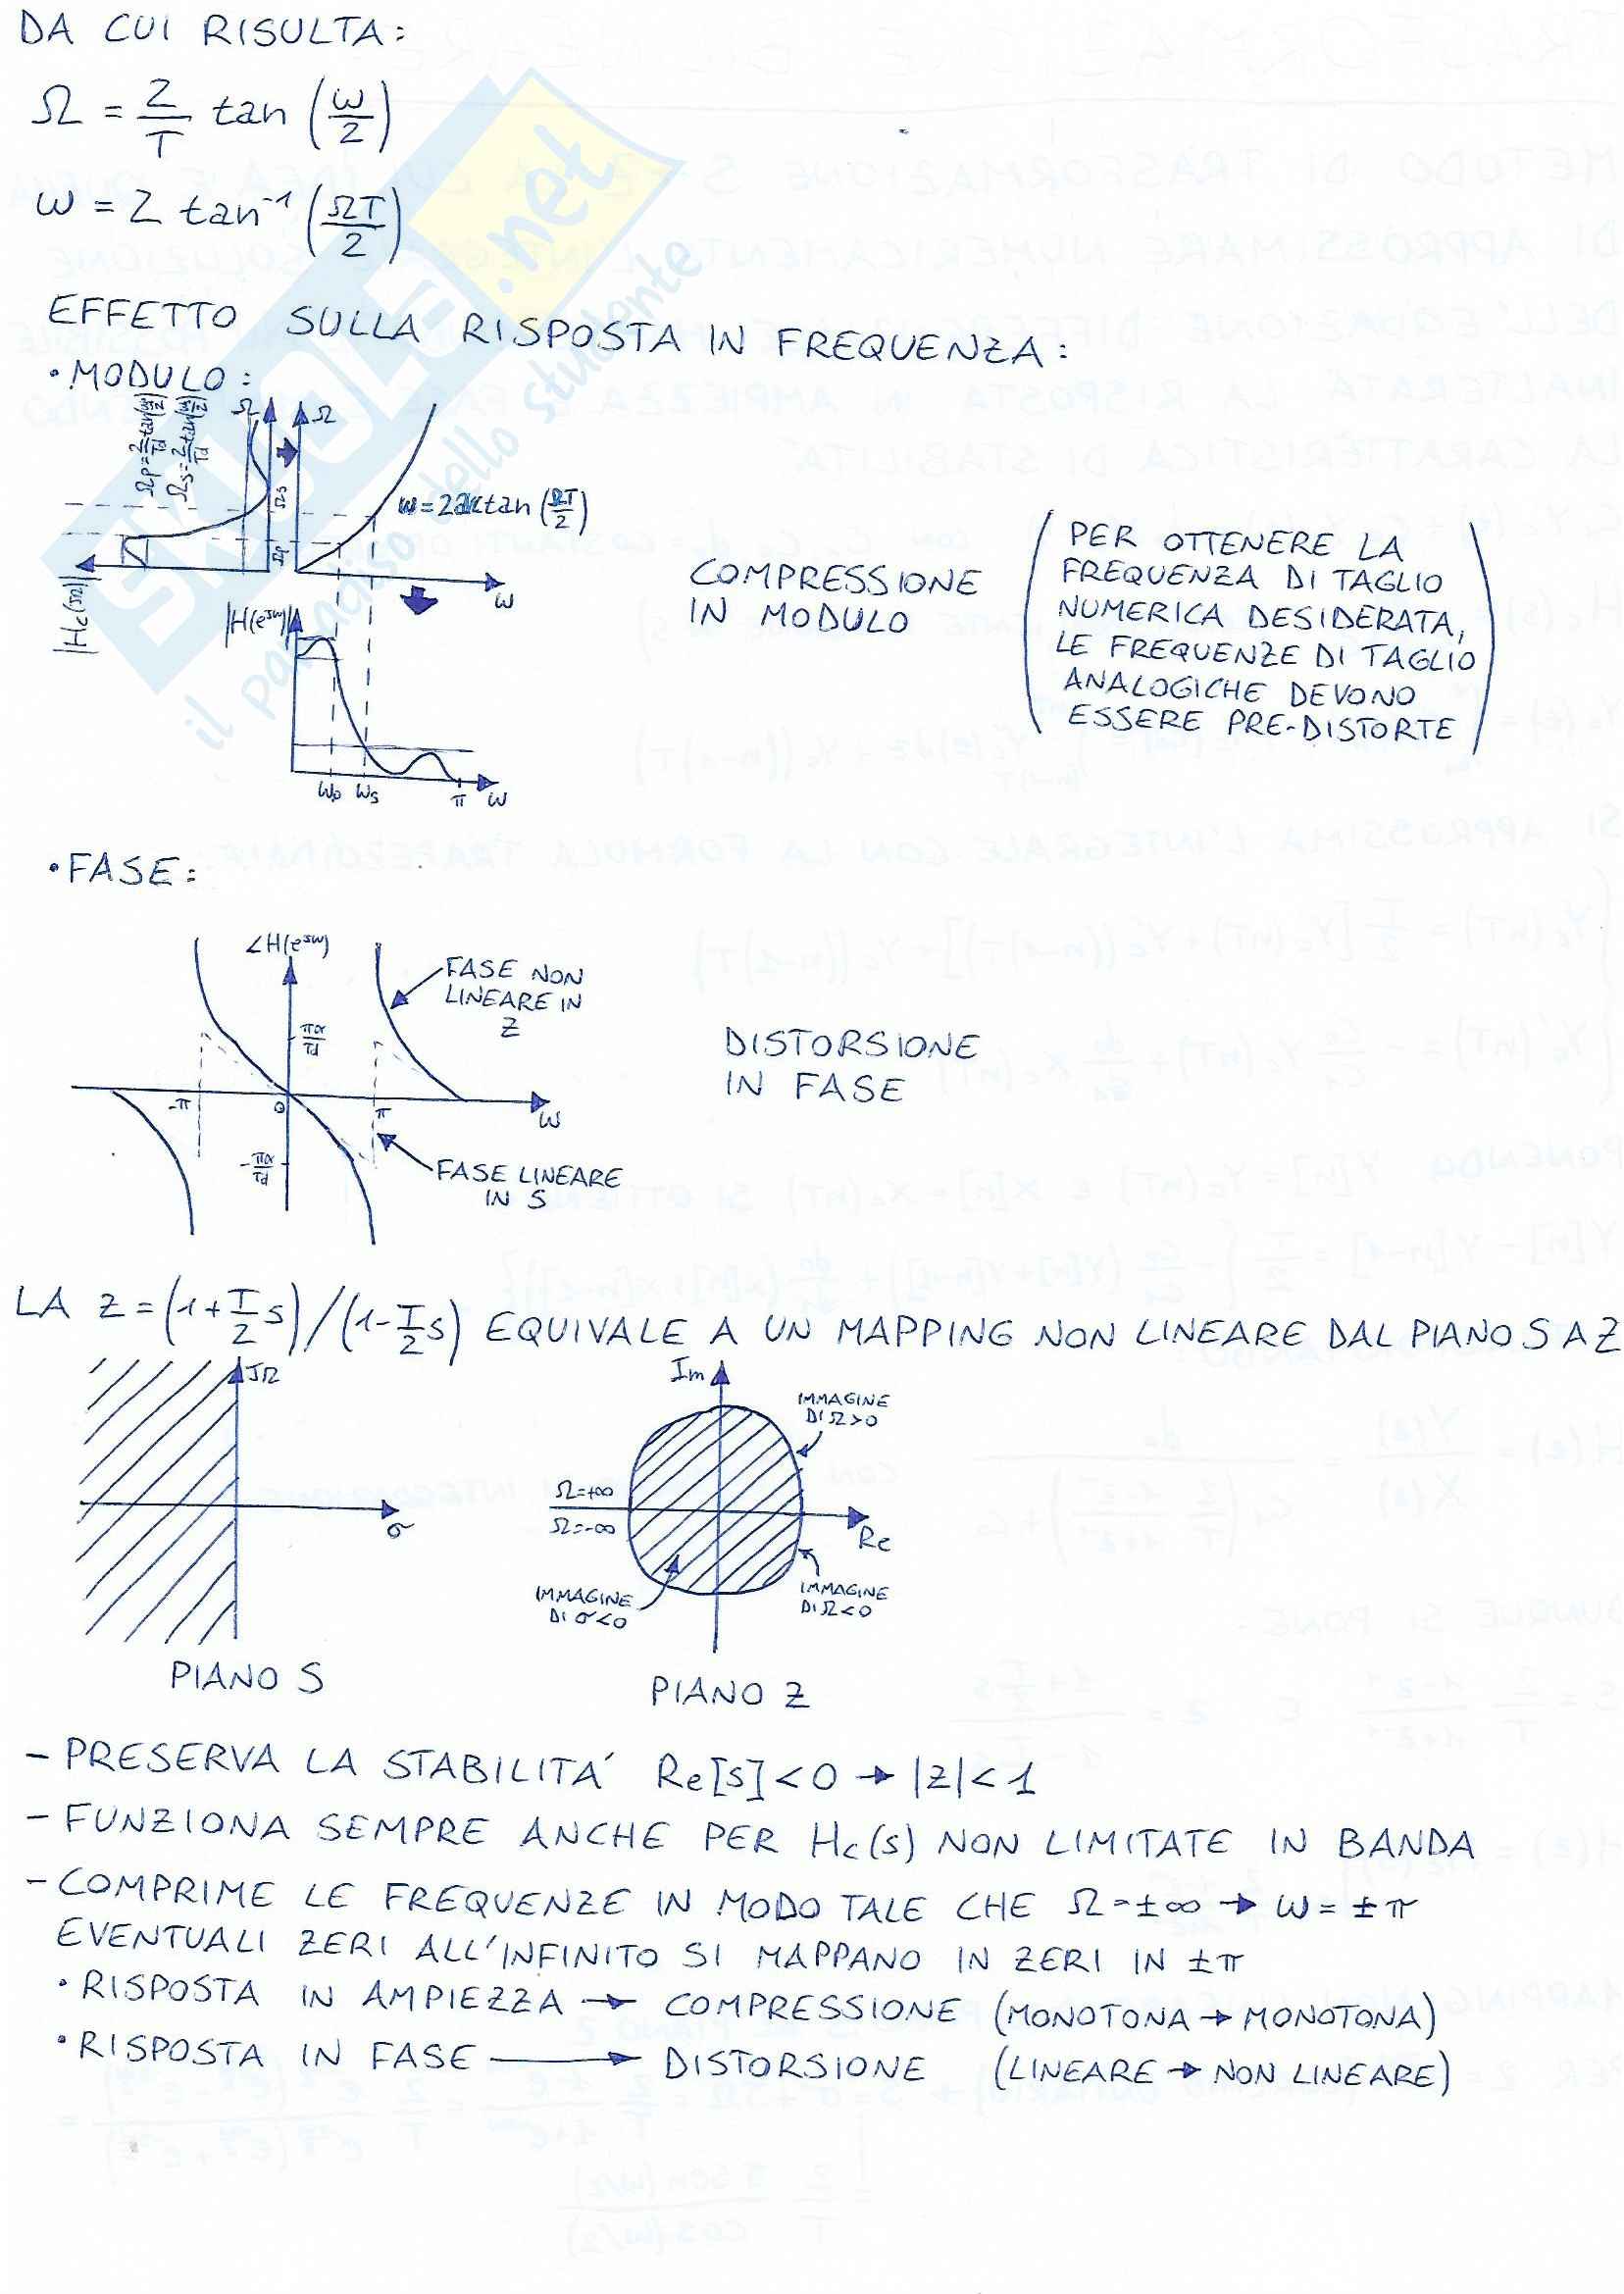 DA CUI RISULTA:
Ω = 2/T tan (ω/2)
ω = 2 tan⁻¹ (ΩT/2)
EFFETTO SULLA RISPOSTA IN FREQUENZA:
• MODULO:
Ωp = 2/Td tan(ωp/2)
Ωs = 2/Td tan(ωs/2)
Ω
Ω
Ωs
Ωp
|Hc(jΩ)|
ω = 2 arctan (ΩT/2)
ω
|H(e^jω)|
ωp ωs π ω
COMPRESSIONE
IN MODULO
(PER OTTENERE LA
FREQUENZA DI TAGLIO
NUMERICA DESIDERATA,
LE FREQUENZE DI TAGLIO
ANALOGICHE DEVONO
ESSERE PRE-DISTORTE)
• FASE:
∠H(e^jω)
FASE NON
LINEARE IN
Z
πα/Td
-π 0 π ω
-πα/Td
FASE LINEARE
IN S
DISTORSIONE
IN FASE
LA Z = (1+T/2 s)/(1-T/2 s) EQUIVALE A UN MAPPING NON LINEARE DAL PIANO S A Z
jΩ
σ
PIANO S
Im
IMMAGINE
DI Ω>0
Ω=+∞
Ω=-∞
Re
IMMAGINE
DI σ<0
IMMAGINE
DI Ω<0
PIANO Z
- PRESERVA LA STABILITA' Re[s]<0 → |z|<1
- FUNZIONA SEMPRE ANCHE PER Hc(s) NON LIMITATE IN BANDA
- COMPRIME LE FREQUENZE IN MODO TALE CHE Ω=±∞ → ω=±π
EVENTUALI ZERI ALL'INFINITO SI MAPPANO IN ZERI IN ±π
• RISPOSTA IN AMPIEZZA → COMPRESSIONE (MONOTONA → MONOTONA)
• RISPOSTA IN FASE → DISTORSIONE (LINEARE → NON LINEARE)
SKUOLA.net
il paradiso dello studente